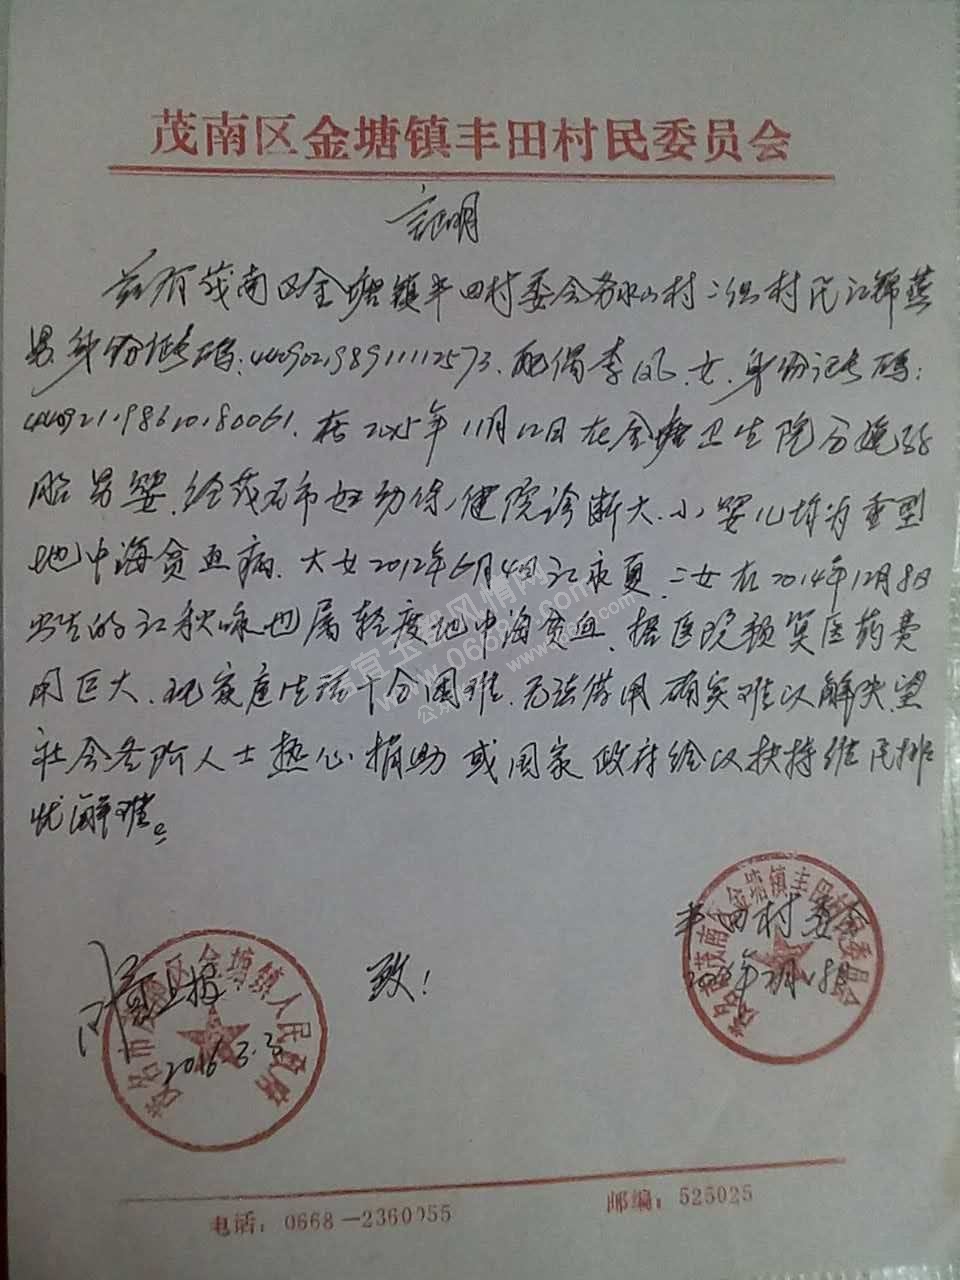 茂南区金塘镇丰田村民委员会
证明
兹有茂南区金塘镇丰田村委会 水山村二组村民江锦燕
男身份证号码:440902198911112573.配偶李凤.女.身份证号码:
440921198610180061.在2015年11月12日在金塘卫生院分娩双
胎男婴.经茂名市妇幼保健院诊断大.小婴儿均为重型
地中海贫血病.大女2012年6月4日江永夏.二女在2014年12月8日
出生的江秋咏也属轻度地中海贫血.据医院预算医药费
用巨大.现家庭生活十分困难.无法借用确实难以解决.望
社会各阶人士热心捐助或国家政府给以扶持维民排
忧解难。
丰田村委会
2016年2月18日
致!
2016.3.3
茂名市茂南区金塘镇人民政府
茂名市茂南区金塘镇丰田村民委员会
信宜玉宝风情网
www.0668
电话:0668-2360055
邮编:525025